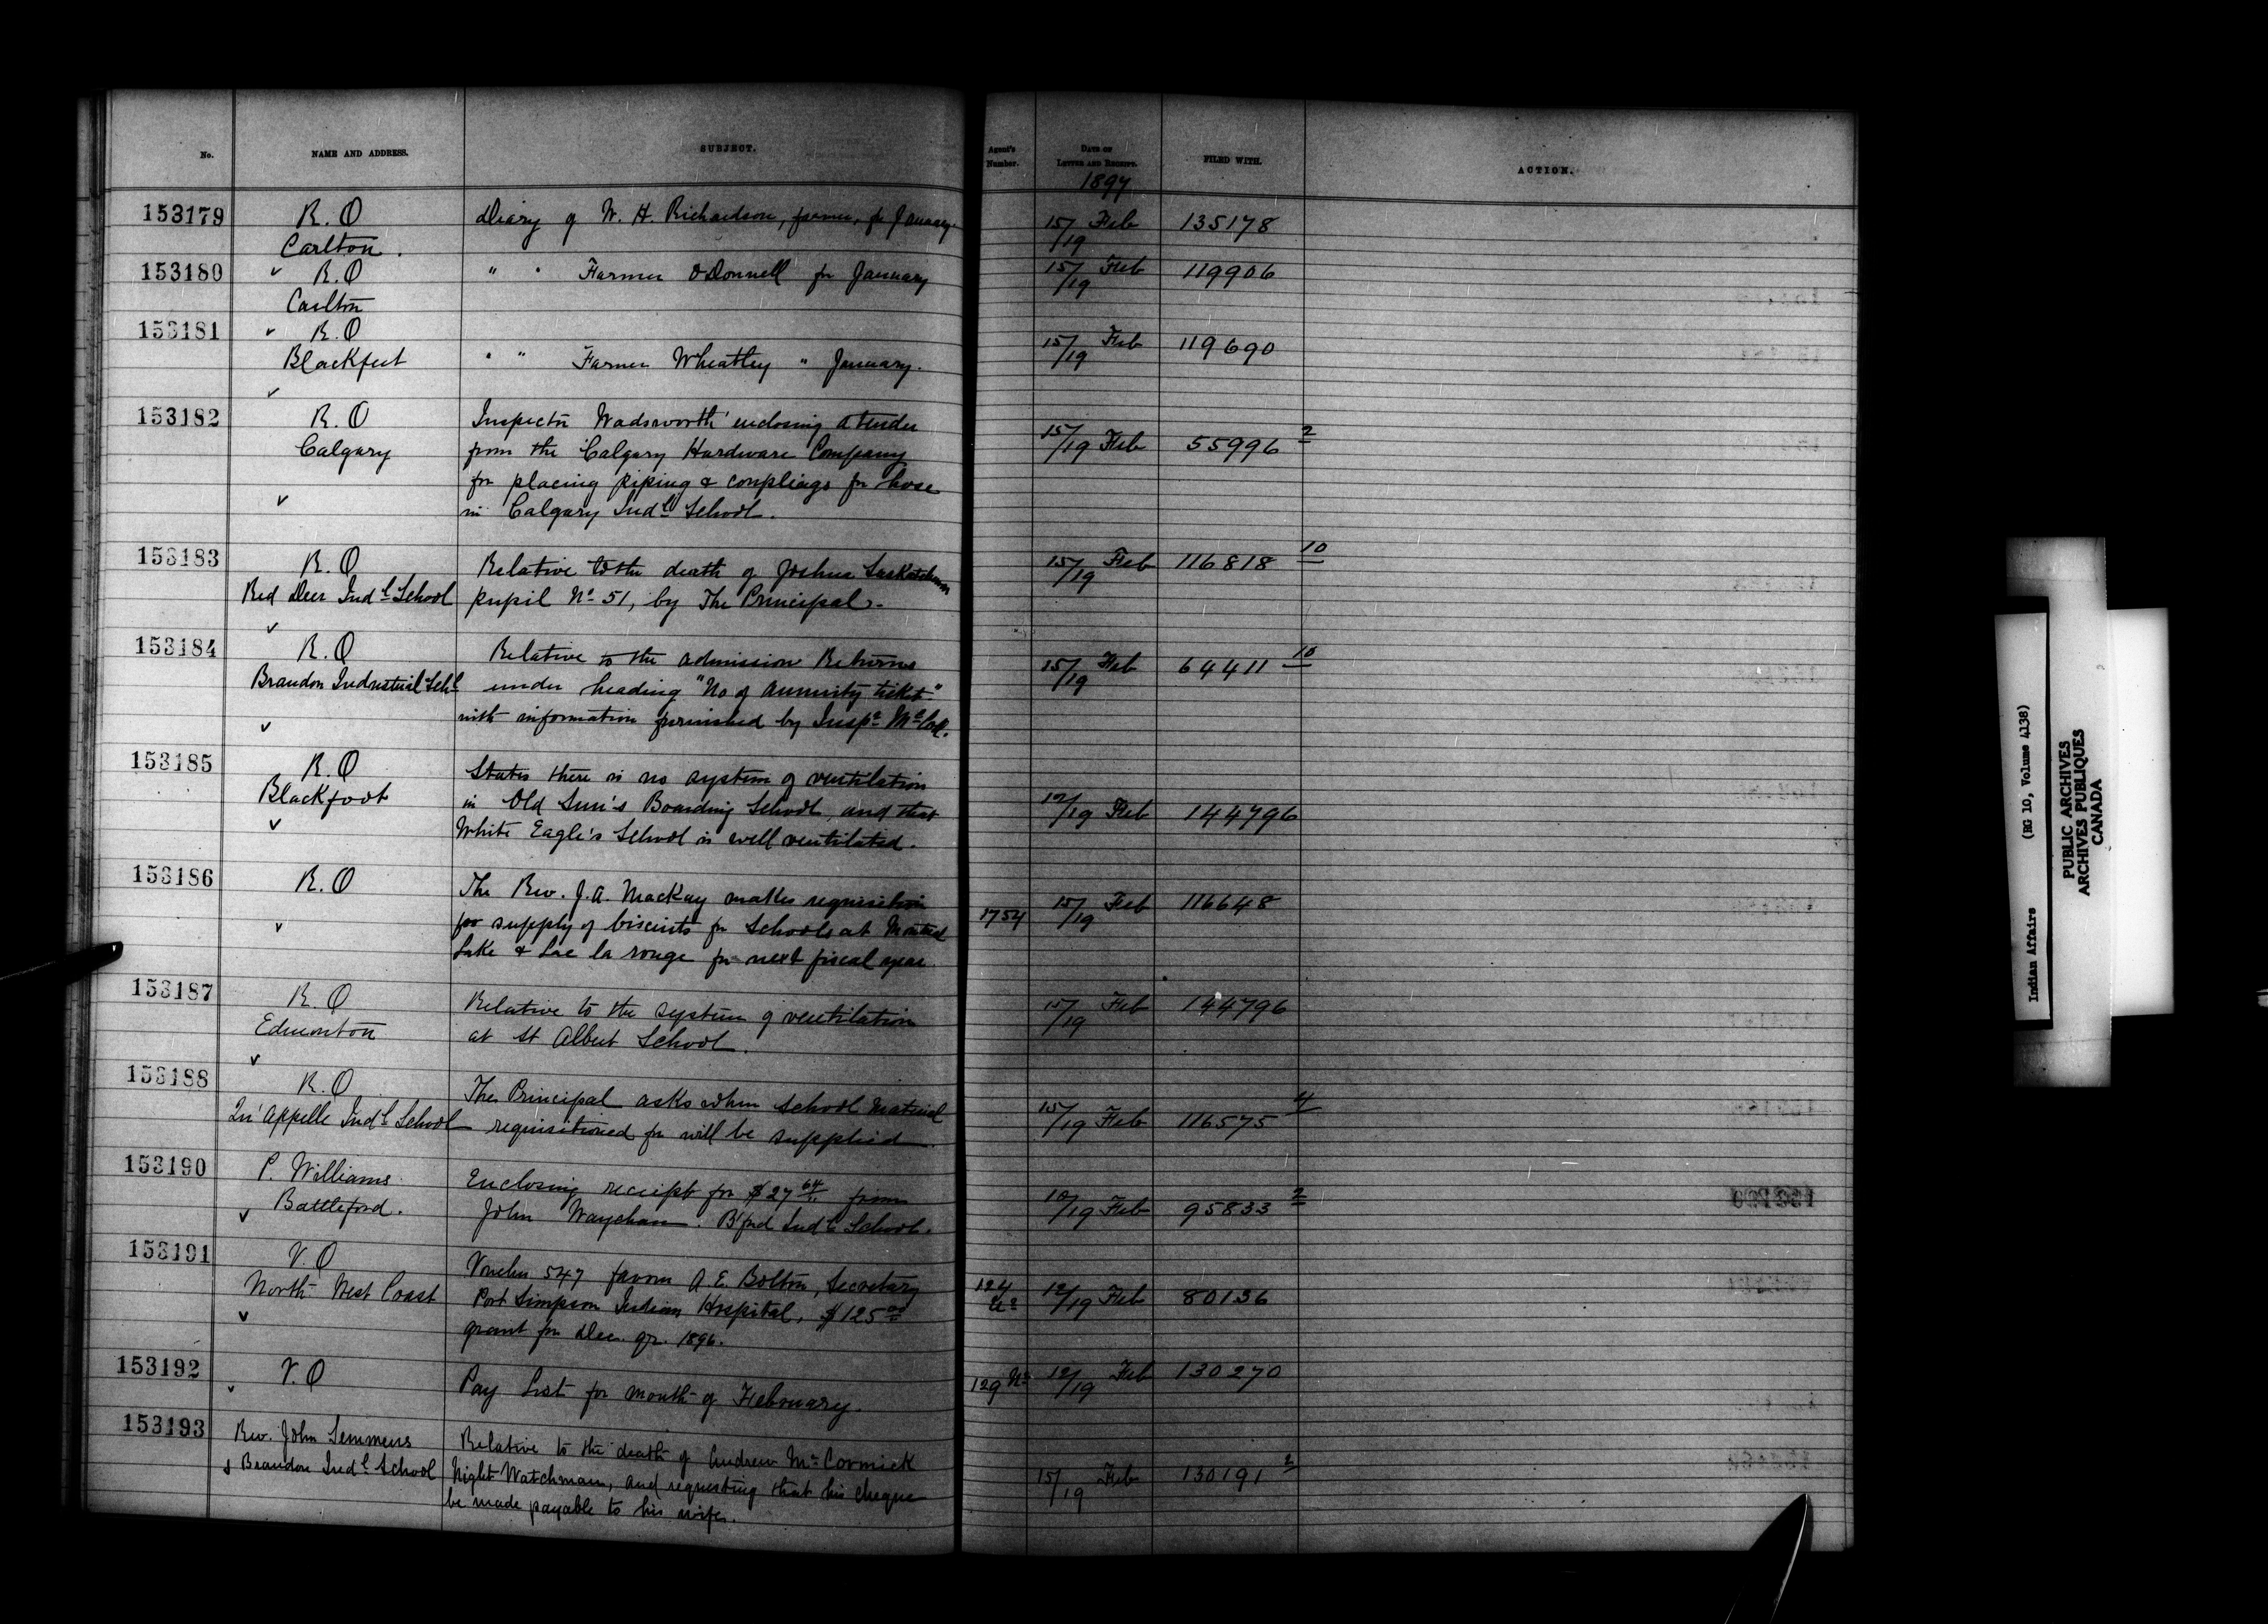 No. NAME AND ADDRESS. SUBJECT. Agent's Number. DATE OF LETTER AND RECEIPT. FILED WITH. ACTION.
1897
153179 R.O Diary of W. H. Richardson, farmer, for January. 15/19 Feb 135178
Carlton.
153180 R.O " " Farmer O'Donnell for January 15/19 Feb 119906
Carlton
153181 R.O
Blackfeet " " Farmer Wheatley " January. 15/19 Feb 119690
153182 R.O Inspector Wadsworth enclosing a tender
Calgary from the Calgary Hardware Company 15/19 Feb 55996 2
for placing piping & couplings for hose
in Calgary Indl School.
153183 R.O Relative to the death of Joshua Saskatchewan 15/19 Feb 116818 10
Red Deer Indl School pupil No 51, by The Principal.
153184 R.O Relative to the admission Returns
Brandon Industrial Schl under heading "No of annuity ticket" 15/19 Feb 64411 10
with information furnished by Inspr McColl.
153185 R.O States there is no system of ventilation
Blackfoot in Old Sun's Boarding School, and that 12/19 Feb 144796
White Eagle's School is well ventilated.
153186 R.O The Rev. J.A. Mackay makes requisition
for supply of biscuits for Schools at Montreal 1754 15/19 Feb 116648
Lake & Lac la rouge for next fiscal year.
153187 R.O Relative to the system of ventilation 15/19 Feb 144796
Edmonton at St Albert School.
153188 R.O The Principal asks when school material
Qu'Appelle Indl School requisitioned for will be supplied. 15/19 Feb 116575 4
153190 P. Williams Enclosing receipt for $27 64 from
Battleford. John Waychan. B'ford Indl School. 10/19 Feb 95833 2
153191 V.O Voucher 547 favour A.E. Bolton, Secretary
North West Coast Port Simpson Indian Hospital, $125 00 124 12/19 Feb 80136
grant for Dec. qr. 1896.
153192 V.O Pay List for month of February. 129 12/19 Feb 130270
153193 Rev. John Semmens Relative to the death of Andrew McCormick
Brandon Indl School Night Watchman, and requesting that his cheque 15/19 Feb 130191 2
be made payable to his wife.
Indian Affairs (RG 10, Volume 4138)
PUBLIC ARCHIVES
ARCHIVES PUBLIQUES
CANADA